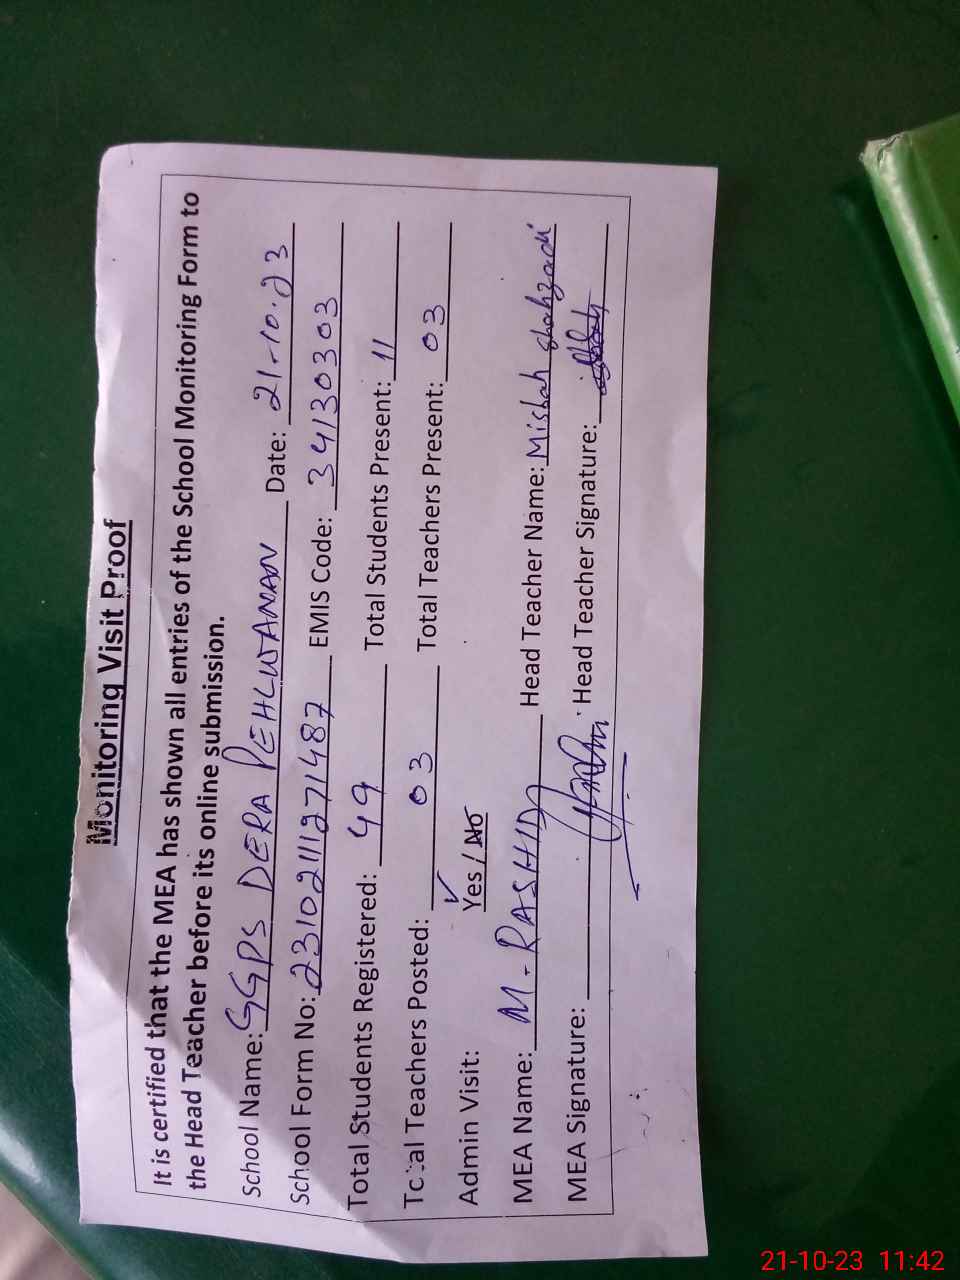 Monitoring Visit Proof
It is certified that the MEA has shown all entries of the School Monitoring Form to
the Head Teacher before its online submission.
School Name: GGPS DERA PEHLWANAN Date: 21-10-23
School Form No: 23102111271487 EMIS Code: 34130303
Total Students Registered: 49 Total Students Present: 11
Total Teachers Posted: 03 Total Teachers Present: 03
Admin Visit: Yes / No
MEA Name: M. RASHID Head Teacher Name: Misbah Shahzadi
MEA Signature: Head Teacher Signature:
21-10-23 11:42